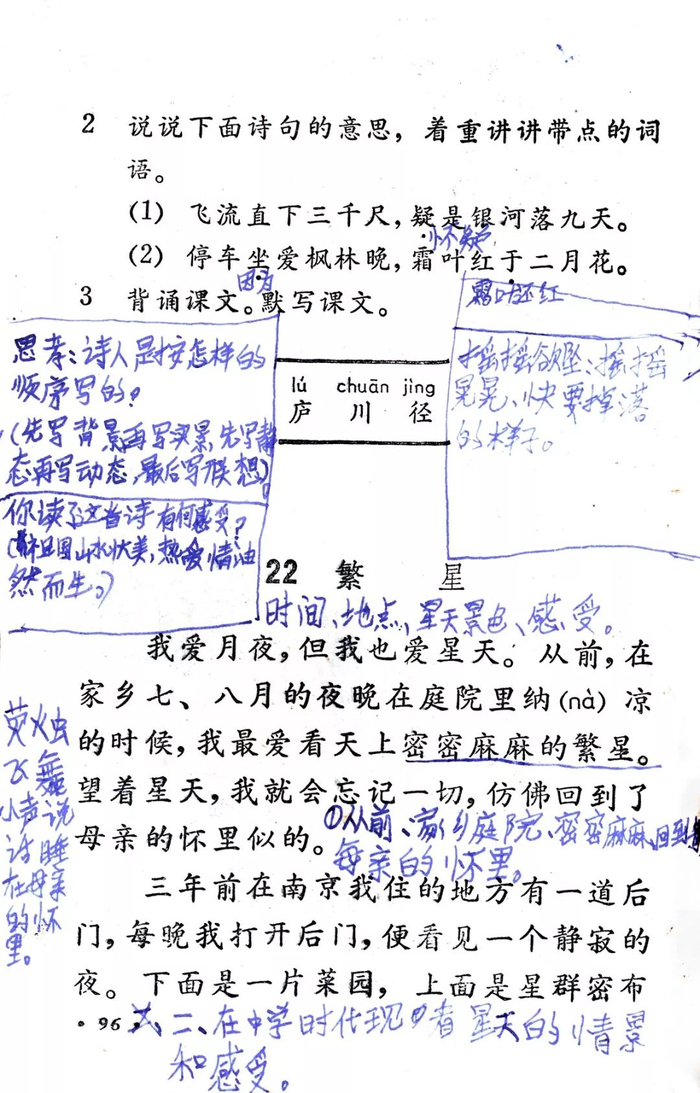 2 说说下面诗句的意思，着重讲讲带点的词
语。
(1) 飞流直下三千尺，疑是银河落九天。
怀疑
(2) 停车坐爱枫林晚，霜叶红于二月花。
因为
霜叶还红
3 背诵课文。默写课文。
思考：诗人是按怎样的
顺序写的？
(先写背景再写实景，先写静
态再写动态，最后写联想)
你读了这首诗有何感受？
祖国山水壮美，热爱情油
然而生。)
lú chuān jìng
庐 川 径
摇摇欲坠：摇摇
晃晃、快要掉落
的样子。
22 繁 星
时间、地点、星天景色、感受。
我爱月夜，但我也爱星天。从前，在
家乡七、八月的夜晚在庭院里纳(nà)凉
的时候，我最爱看天上密密麻麻的繁星。
望着星天，我就会忘记一切，仿佛回到了
母亲的怀里似的。
①从前、家乡庭院、密密麻麻、回到
母亲的怀里。
荧虫
飞舞
小声说
话 睡
在母亲
的怀
里。
三年前在南京我住的地方有一道后
门，每晚我打开后门，便看见一个静寂的
夜。下面是一片菜园，上面是星群密布
·96·
二、在中学时代现 者星天的情景
和感受。